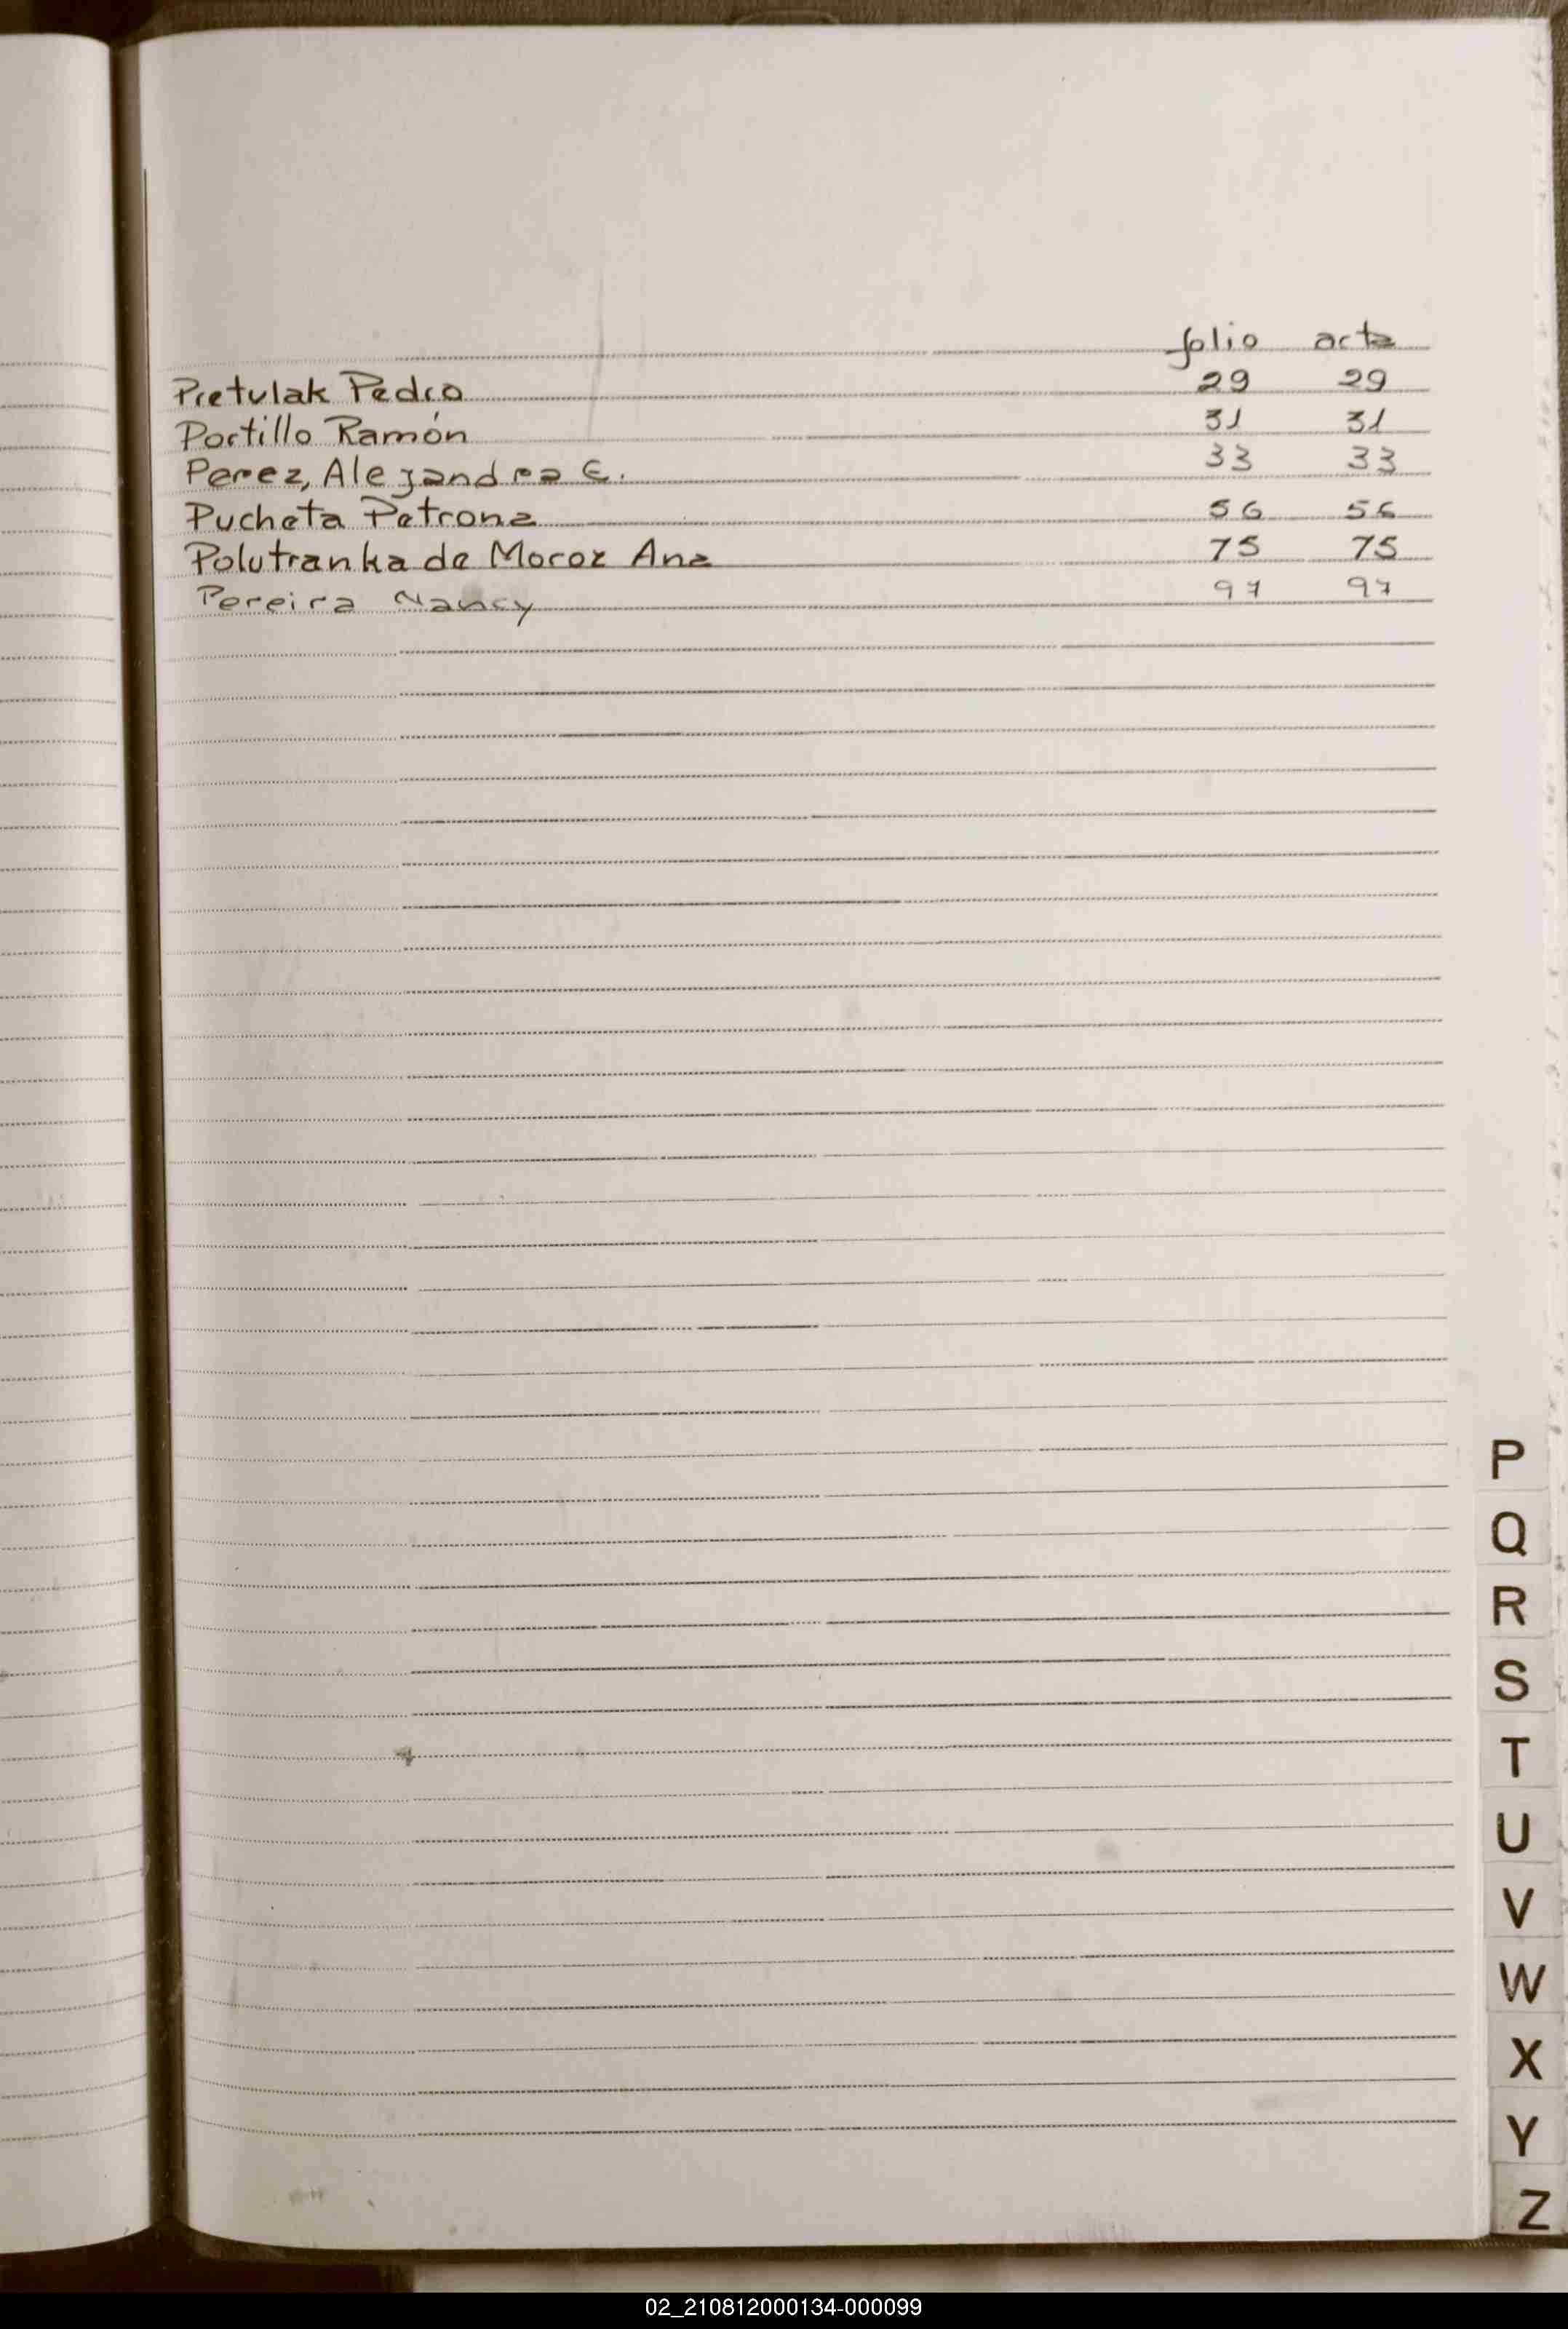 folio acta
Pretulak Pedro 29 29
Portillo Ramón 31 31
Perez, Alejandra E. 33 33
Pucheta Petrona 56 56
Polutranka de Moroz Ana 75 75
Pereira Nancy 97 97
P
Q
R
S
T
U
V
W
X
Y
Z
02_210812000134-000099